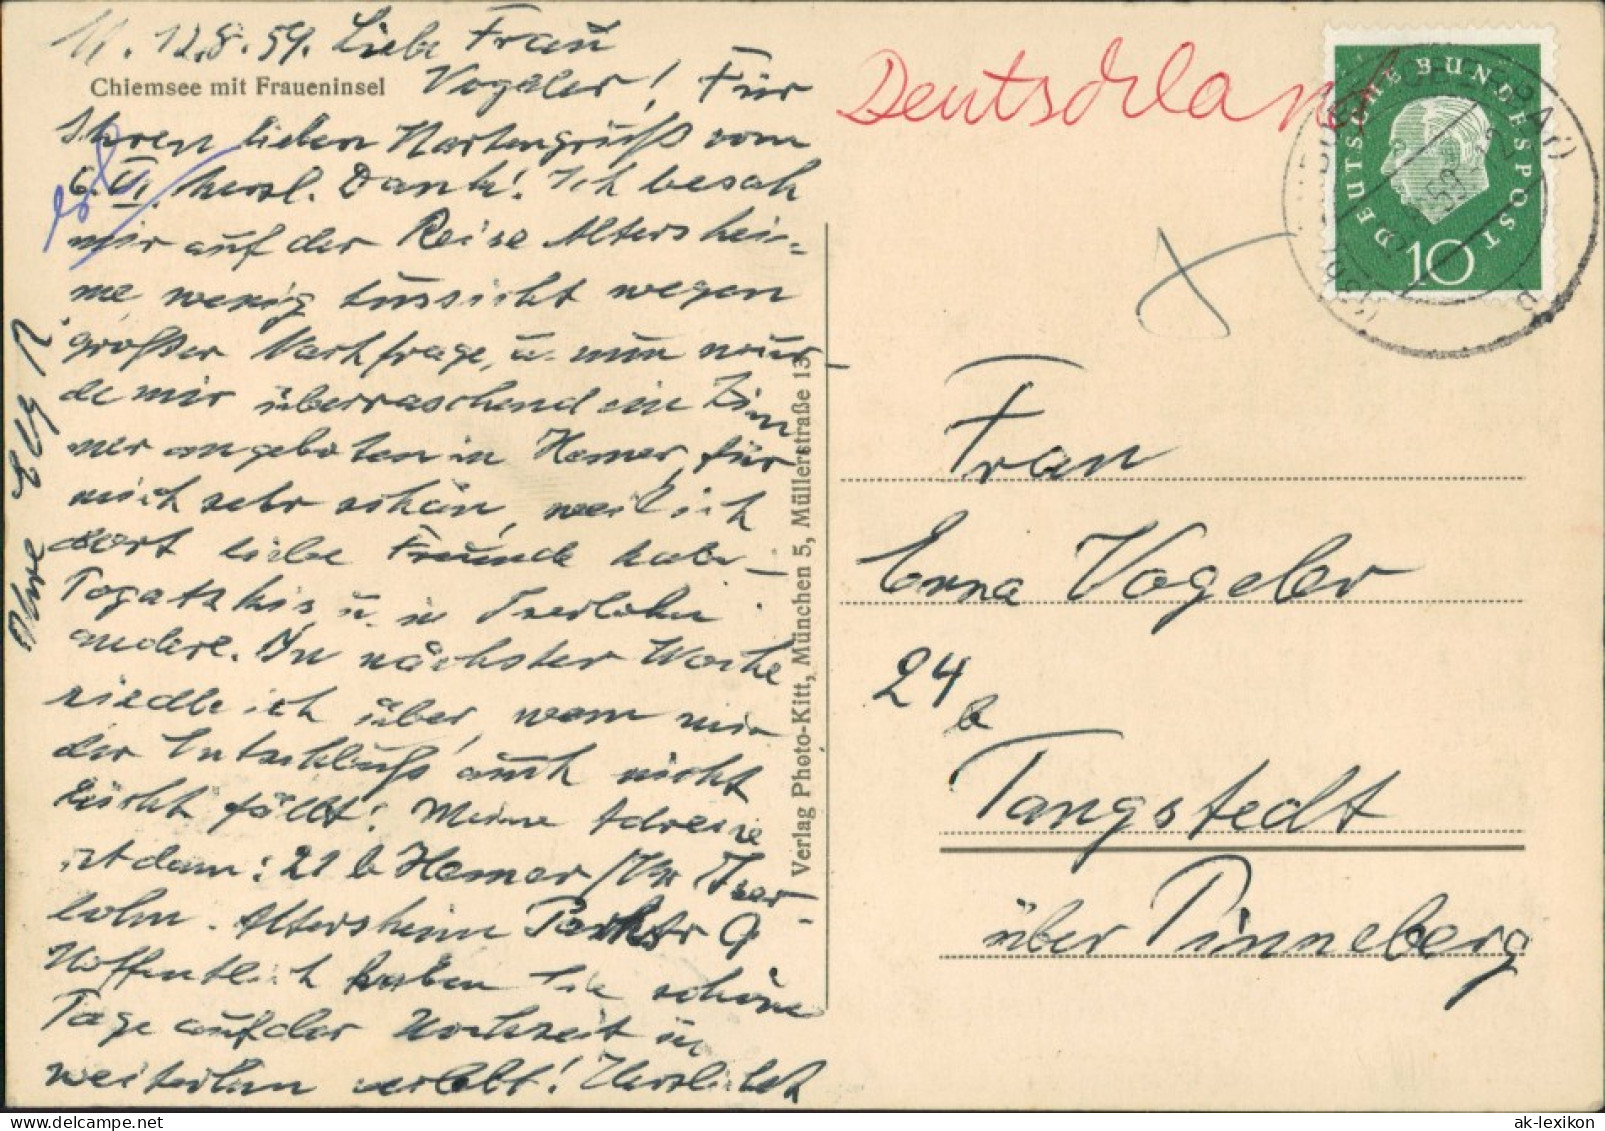 11. 12.8.59. Liebe Frau
Chiemsee mit Fraueninsel
Vogeler! Für
Ihren lieben Kartengruß vom
6. VI. herzl. Dank! Ich besah
mir auf der Reise Altershei=
me, wenig Aussicht wegen
großer Nachfrage, u. nun wur-
de mir überraschend ein Zim
mer angeboten in Hemer, für
mich sehr schön, weil ich
dort liebe Freunde habe -
u. in Iserlohn
andere. In nächster Woche
siedle ich über, wenn mir
der Entschluß auch nicht
leicht fällt! Meine Adresse
ist dann: 21 b Hemer / Kr Iser-
lohn. Altersheim Parkstr 9
Hoffentlich haben Sie schöne
Tage auf der Hochzeit u
weiterhin verlebt! Herzlichst
Ihre
Verlag Photo-Kitt, München 5, Müllerstraße 13
Deutschland
DEUTSCHE BUNDESPOST
10
Frau
Erna Vogeler
24 b
Tangstedt
über Pinneberg
ak-lexikon